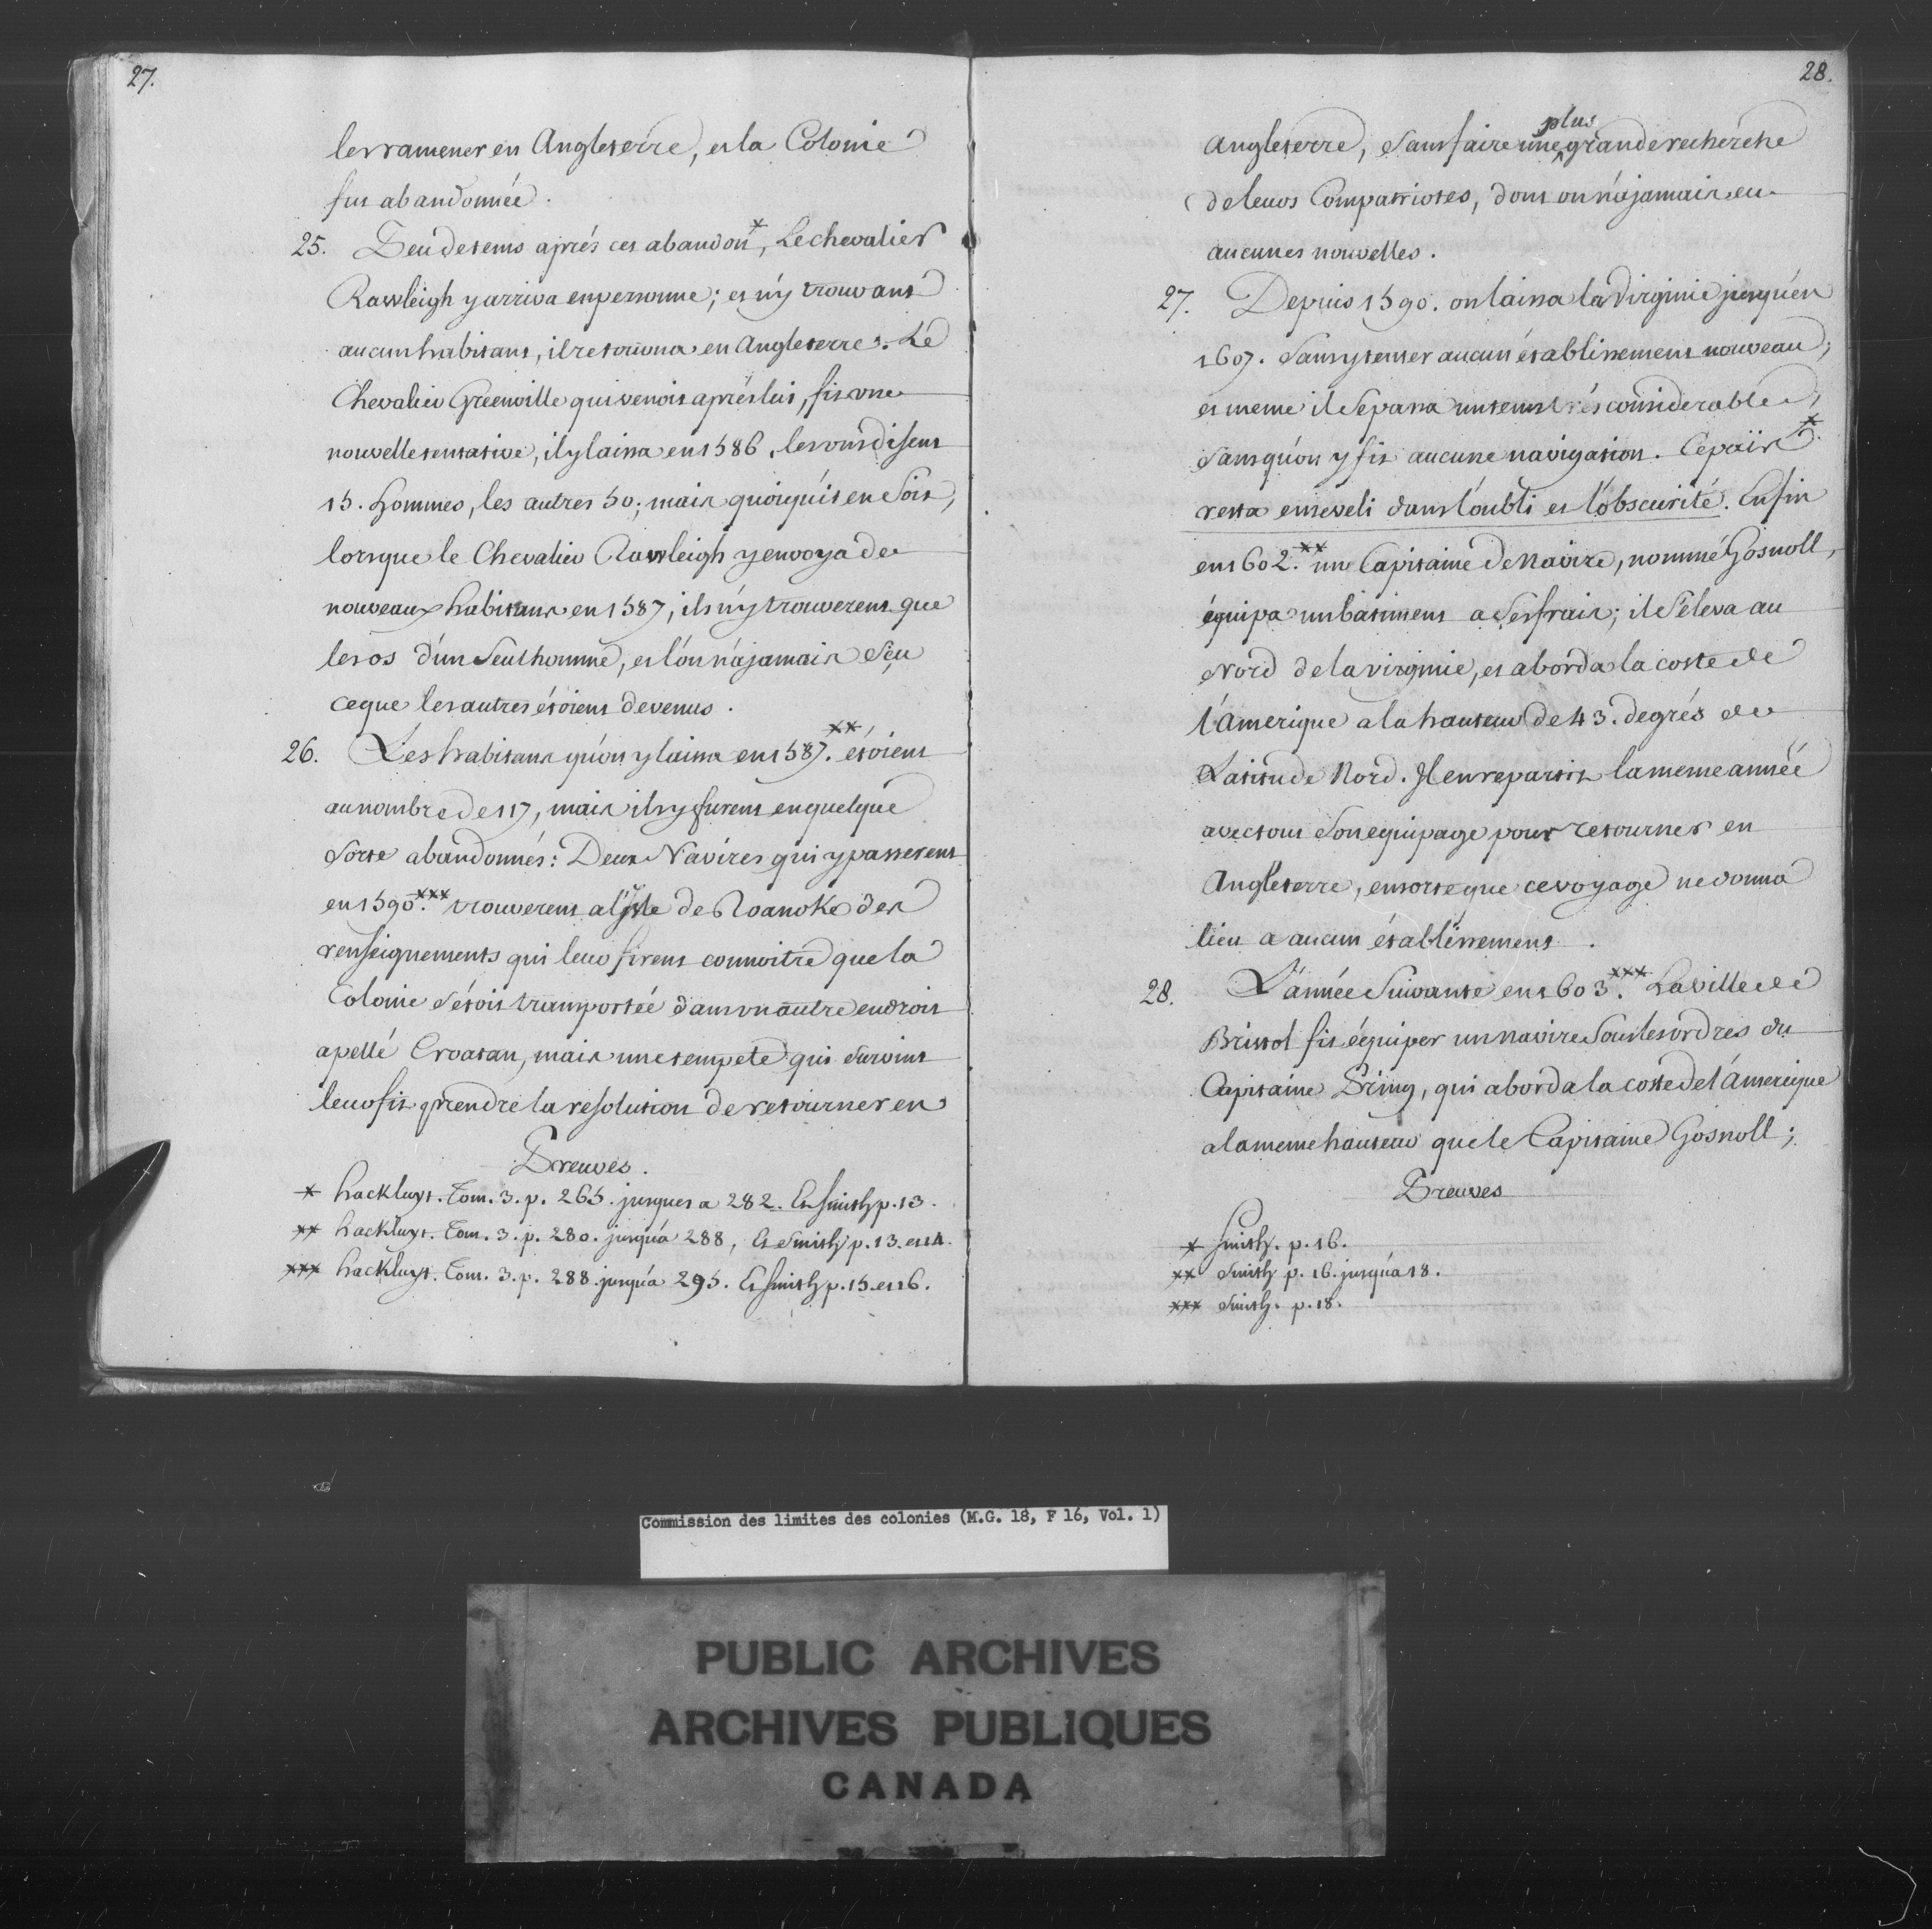 27.
les ramener en Angleterre, et la Colonie
fut abandonnée.
25. Peu de tems aprés cet abandon *, Le chevalier
Rawleigh y arriva en personne; et n'y trouvant
aucun habitant, il retourna en Angleterre. Le
Chevalier Greenville qui venoit aprés lui, fit une
nouvelle tentative, il y laissa en 1586. les uns disent
15. hommes, les autres 50; mais quoiqu'it en soit,
lorsque le Chevalier Rawleigh y envoya de
nouveaux habitans en 1587, ils n'y trouverent que
les os d'un seul homme, et l'on n'a jamais sçu
ce que les autres étoient devenus.
26. Les habitans qu'on y laissa en 1587. ** étoient
au nombre de 117, mais ils y furent en quelque
sorte abandonnés: Deux Navires qui y passerent
en 1590. *** trouverent a l'isle de Roanoke des
renseignements qui leur firent connoitre que la
Colonie s'étoit transportée dans un autre endroit
apellé Croatan, mais une tempete qui survint
leur fit prendre la resolution de retourner en
Preuves.
* hackluyt. Tom. 3. p. 265. jusques a 282. Et Smith p. 13.
** hackluyt. Tom. 3. p. 280. jusqu'a 288, Et Smith p. 13. et 14.
*** hackluyt. Tom. 3. p. 288 jusqu'a 295. Et Smith p. 15. et 16.
28.
Angleterre, sans faire une plus grande recherche
de leurs Compatriotes, dont on n'a jamais eu
aucunes nouvelles.
27. Depuis 1590. on laissa la Virginie jusqu'en
1607. sans y tenter aucun établissement nouveau;
et meme il se passa un tems trés considerable,
sans qu'on y fit aucune navigation. Ce païs *
resta enseveli dans l'oubli et l'obscurité. Enfin
en 1602. ** un Capitaine de Navire, nommé Gosnoll,
équipa un batiment a ses frais; il s'éleva au
Nord de la virginie, et aborda la coste de
l'Amerique a la hauteur de 43. degrés de
Latitude Nord. Il en repartit la meme année
avec tout son equipage pour retourner en
Angleterre, en sorte que ce voyage ne donna
lieu a aucun établissement.
28. L'année suivante en 1603. *** La ville de
Bristol fit équiper un navire sous les ordres du
Capitaine Pring, qui aborda la coste de l'Amerique
a la meme hauteur que le Capitaine Gosnoll;
Preuves
* Smith. p. 16.
** Smith p. 16. jusqu'a 18.
*** Smith. p. 18.
Commission des limites des colonies (M.G. 18, F 16, Vol. 1)
PUBLIC ARCHIVES
ARCHIVES PUBLIQUES
CANADA